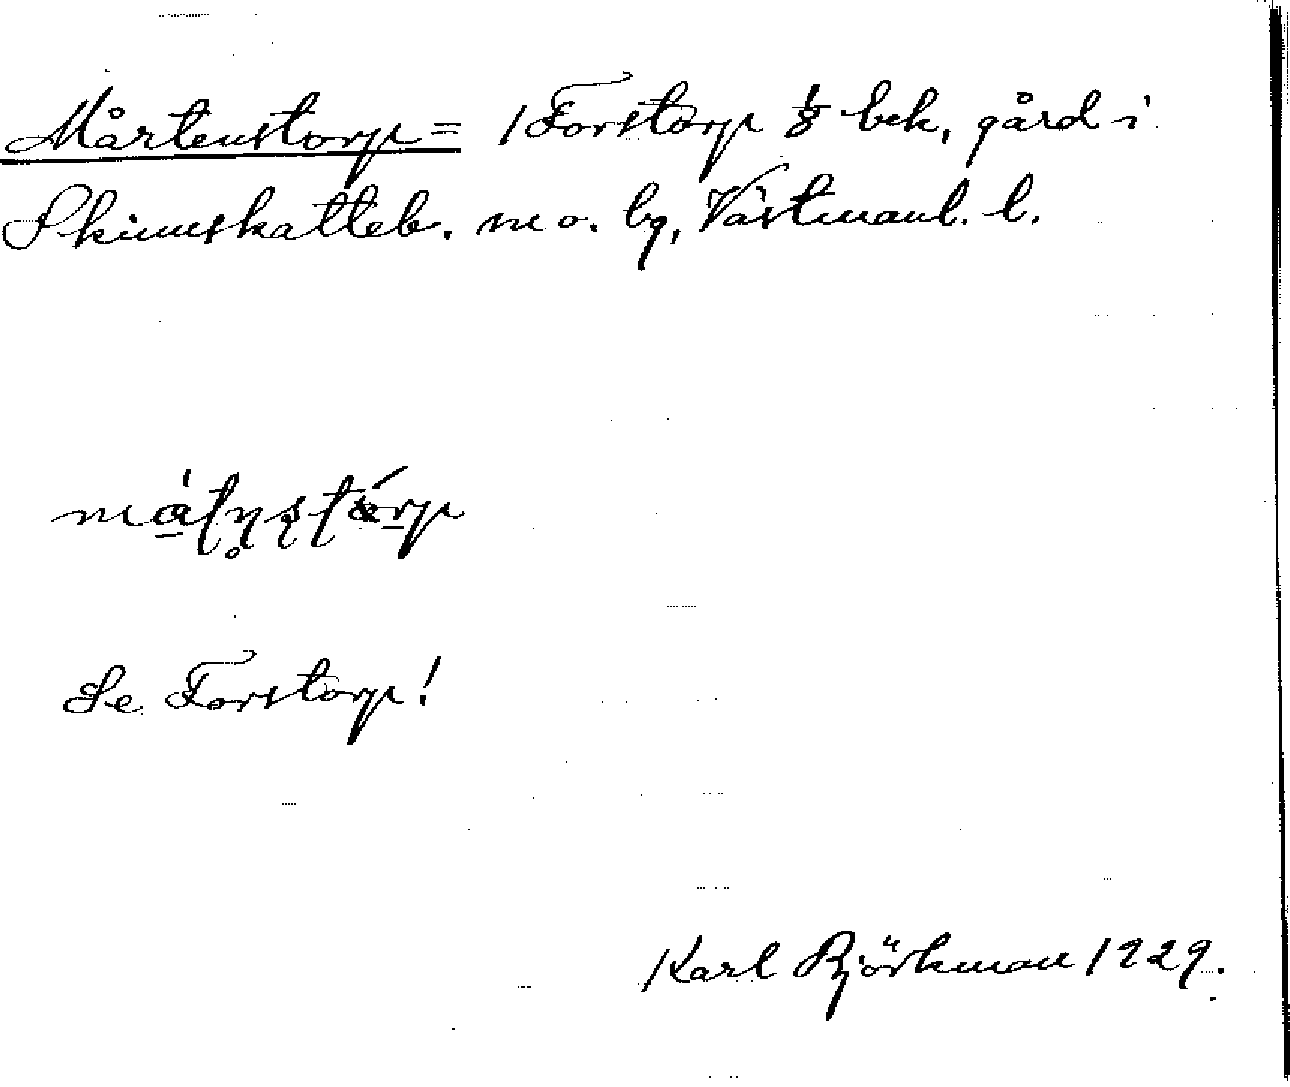 Mårtenstorp = 1 Forstorp 1/8 bek, gård i
Skinnskatteb. m o. bg, Västmanl. l.
Se Forstorp!
Karl Björkman 1929.